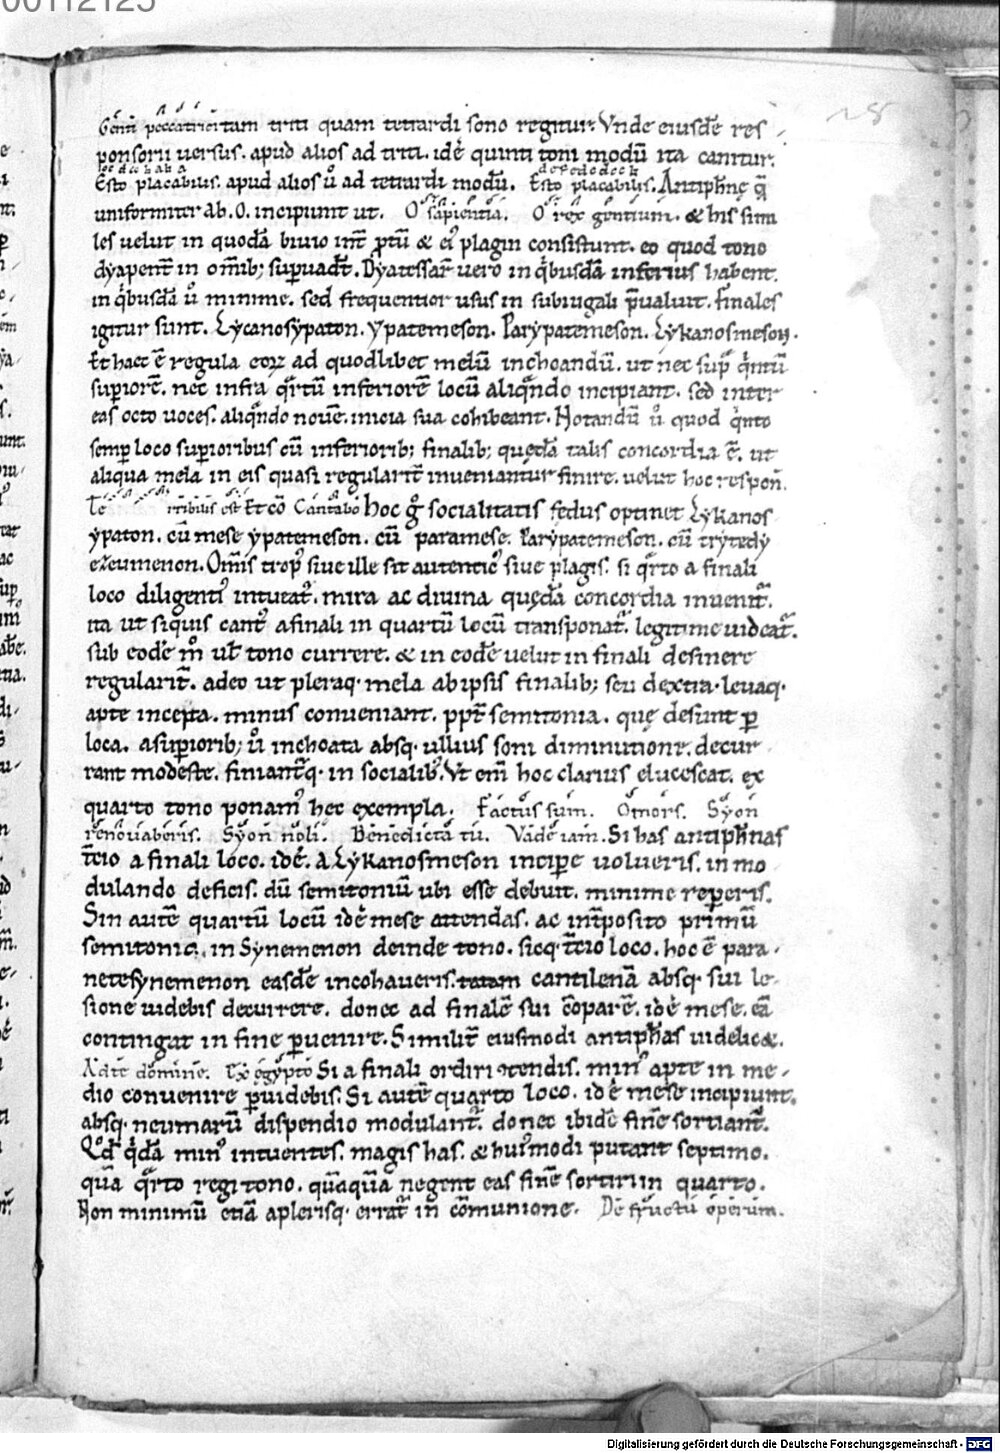 00112125
28
Gem̅ peccatricitam triti quam tetrardi sono regitur. Vnde eiusdē res
ponsorii uersus. apud alios ad triti. idē quinti toni modū ita canitur.
Esto placabilis. apud alios u̇ ad tetrardi modū. Esto placabilis. Antiphn̄ę q̄
uniformiter ab .O. incipiunt ut. O sapientia. O rex gentium. & his simi
les uelut in quodā biuio int̄ ptū & ei᷒ plagin consistunt. eo quod tono
dyapent̄ in om̄ib; sup̲uadt̄. Dyatessar̄ uero in q̇busdā inferius habent.
in q̇busdā u̇ minime. sed frequentior usus in subiugali p̄ualuit. Finales
igitur sunt. Lycanosypaton. ypatemeson. Parypatemeson. Lykanosmeson.
Et haec ē regula eoꝝ ad quodlibet melū inchoandū. ut nec sup̄ q̇ntū
supiorē. nec infra q̇rtū inferiorē locū aliq̄ndo incipiant. sed inter
eas octo uoces. aliq̄ndo nouē. inicia sua cohibeant. Notandū u̇ quod q̇nto
semp̲ loco sup̲ioribus cū inferiorib; finalib; quędā talis concordia ē. ut
aliqua mela in eis quasi regularit̄ inueniantur finire. uelut hoc respon̄.
Te rribilis est Et cō Cantabo Hoc g̊ socialitatis fedus optinet Lykanos
ypaton. cū mese ypatemeson. cū paramese. Parypatemeson. cū trytedy
ezeumenon. Om̄is trop᷒ siue ille sit autentic᷒ siue plagis. si q̇rto a finali
loco diligent᷒ intutat᷒. mira ac diuina quędā concordia inuenit᷒.
ita ut siquis cant᷒ afinali in quartū locū transponat᷒. legitime uideat᷒.
sub eodē m̊ ul̄ tono currere. & in eodē uelut in finali desinere
regularit̄. adeo ut pleraq· mela ab ipsis finalib; seu dextra· leuaq·
apte incepta. minus conueniant. ppt̄ semitonia. quę desunt p̲
loca. asup̲iorib; u̇ inchoata absq· ullius soni diminutione. decur
rant modeste. finiant᷒q· in socialib᷒. Vt em̄ hoc clarius elucescat. ex
quarto tono ponam᷒ hec exempla. Factus sum. O mors. Syon
renouaberis. Syon noli. Benedicta tu. Vade iam. Si has antiphn̄as
t̄cio afinali loco. idē. A Lykanosmeson incipe uolueris. in mo
dulando deficis. dū semitoniū ubi esse debuit. minime rep̲eris.
Sin autē quartū locū idē mese attendas. ac int̄posito primū
semitonio, in Synemenon deinde tono. sicq· t̄cio loco. hoc ē para·
netesynemenon easdē incohaueris. totam cantilenā absq· sui le·
sione uidebis decurrere. donec ad finalē sui c̄oparē. idē mese. eā
contingat in fine p̲uenire. Similit̄ eiusmodi antiph̄as uidelic&.
A dt̄e domine. Ex egypto Si a finali ordiri ꝯtendis. min᷒ apte in me·
dio conuenire p̲uidebis. Si autē quarto loco. idē mese incipiunt.
absq· neumarū dispendio modulant᷒. donec ibidē finē sortiant᷒.
Qd̄ q̇dā min᷒ intuentes. magis has. & hui᷒modi putant septimo.
quā q̇rto regi tono. quāquā negent eas finē sortiri in quarto.
Non minimū etiā aplerisq· errat᷒ in c̄omunione. De fructu operum.
Digitalisierung gefördert durch die Deutsche Forschungsgemeinschaft - DFG